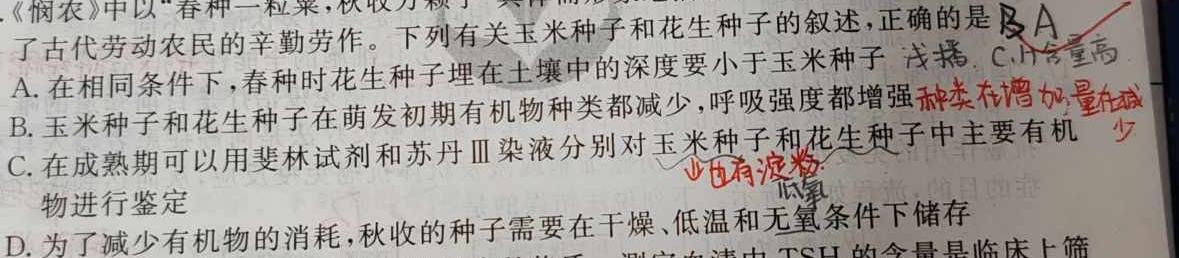 《悯农》中以“春种一粒粟,秋收万颗子”
了古代劳动农民的辛勤劳作。下列有关玉米种子和花生种子的叙述,正确的是 B A
A. 在相同条件下,春种时花生种子埋在土壤中的深度要小于玉米种子 浅播 C、H含量高
B. 玉米种子和花生种子在萌发初期有机物种类都减少,呼吸强度都增强 种类在增加,量在减少
C. 在成熟期可以用斐林试剂和苏丹Ⅲ染液分别对玉米种子和花生种子中主要有机
也有淀粉
物进行鉴定
低氧
D. 为了减少有机物的消耗,秋收的种子需要在干燥、低温和无氧条件下储存
测定血清中 TSH 的含量是临床上筛